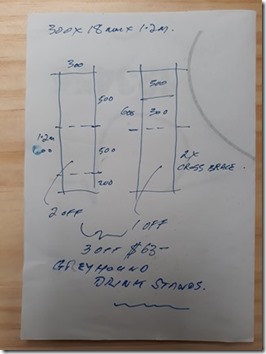 300 x 18 mm x 1.2 m.
300
500
500
600
300
1.2m
500
200
2X
CROSS BRACE.
2 OFF
1 OFF
3 OFF $63-
GREYHOUND
DRINK STANDS.